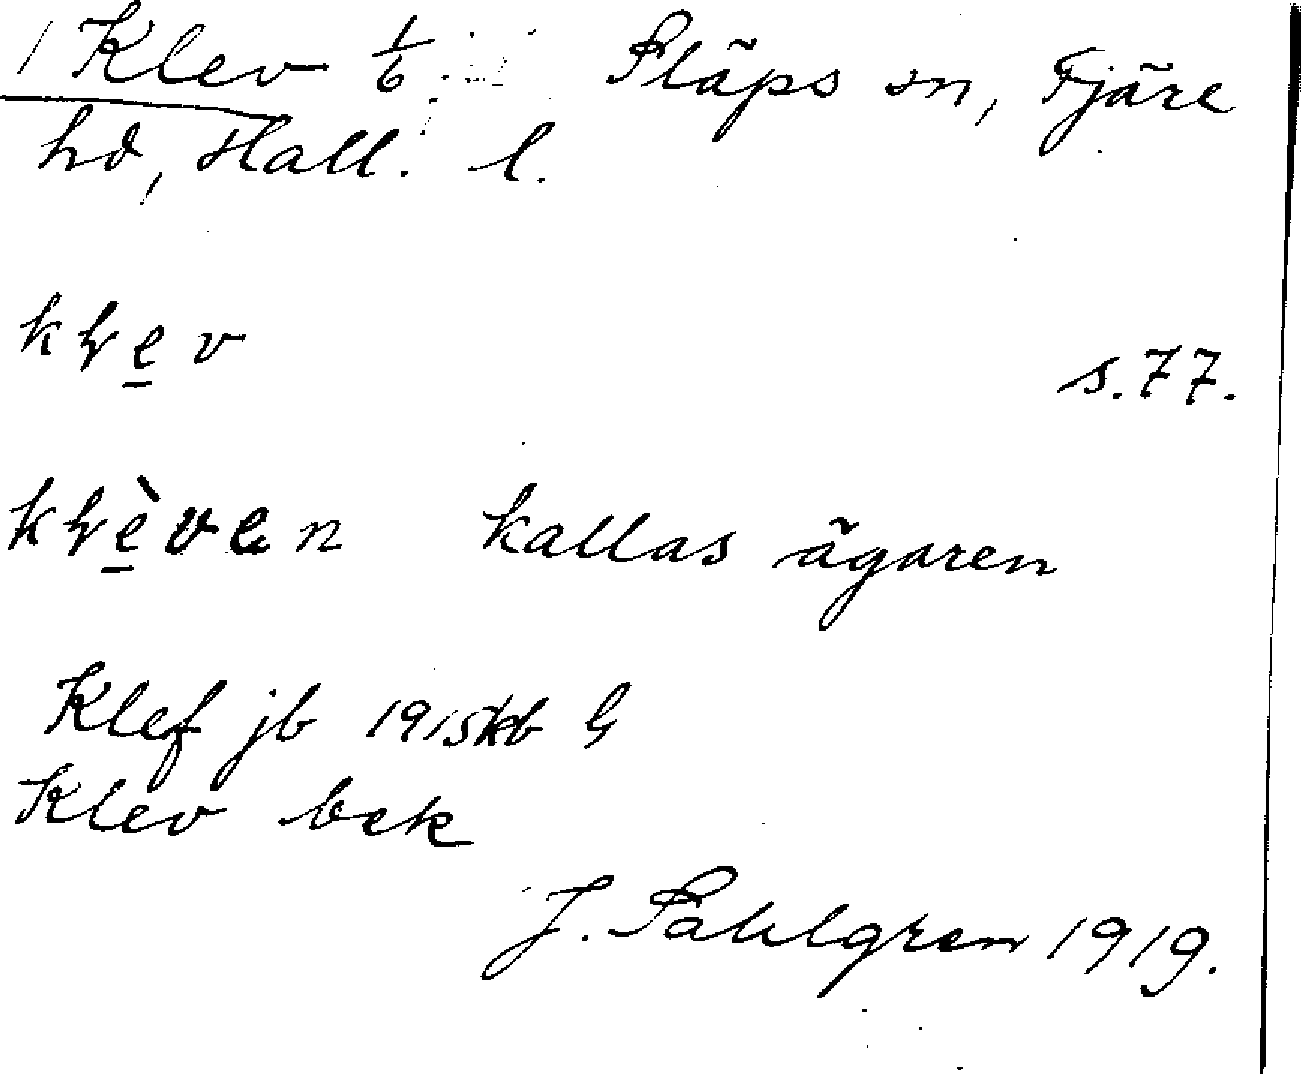 1 Klev 1/6 Släps sn, Fjäre
hd, Hall. l.
kłe̲v
s. 77.
kłè̲ven kallas ägaren
Klef jb 1915 kb G
Klev bek
J. Sahlgren 1919.